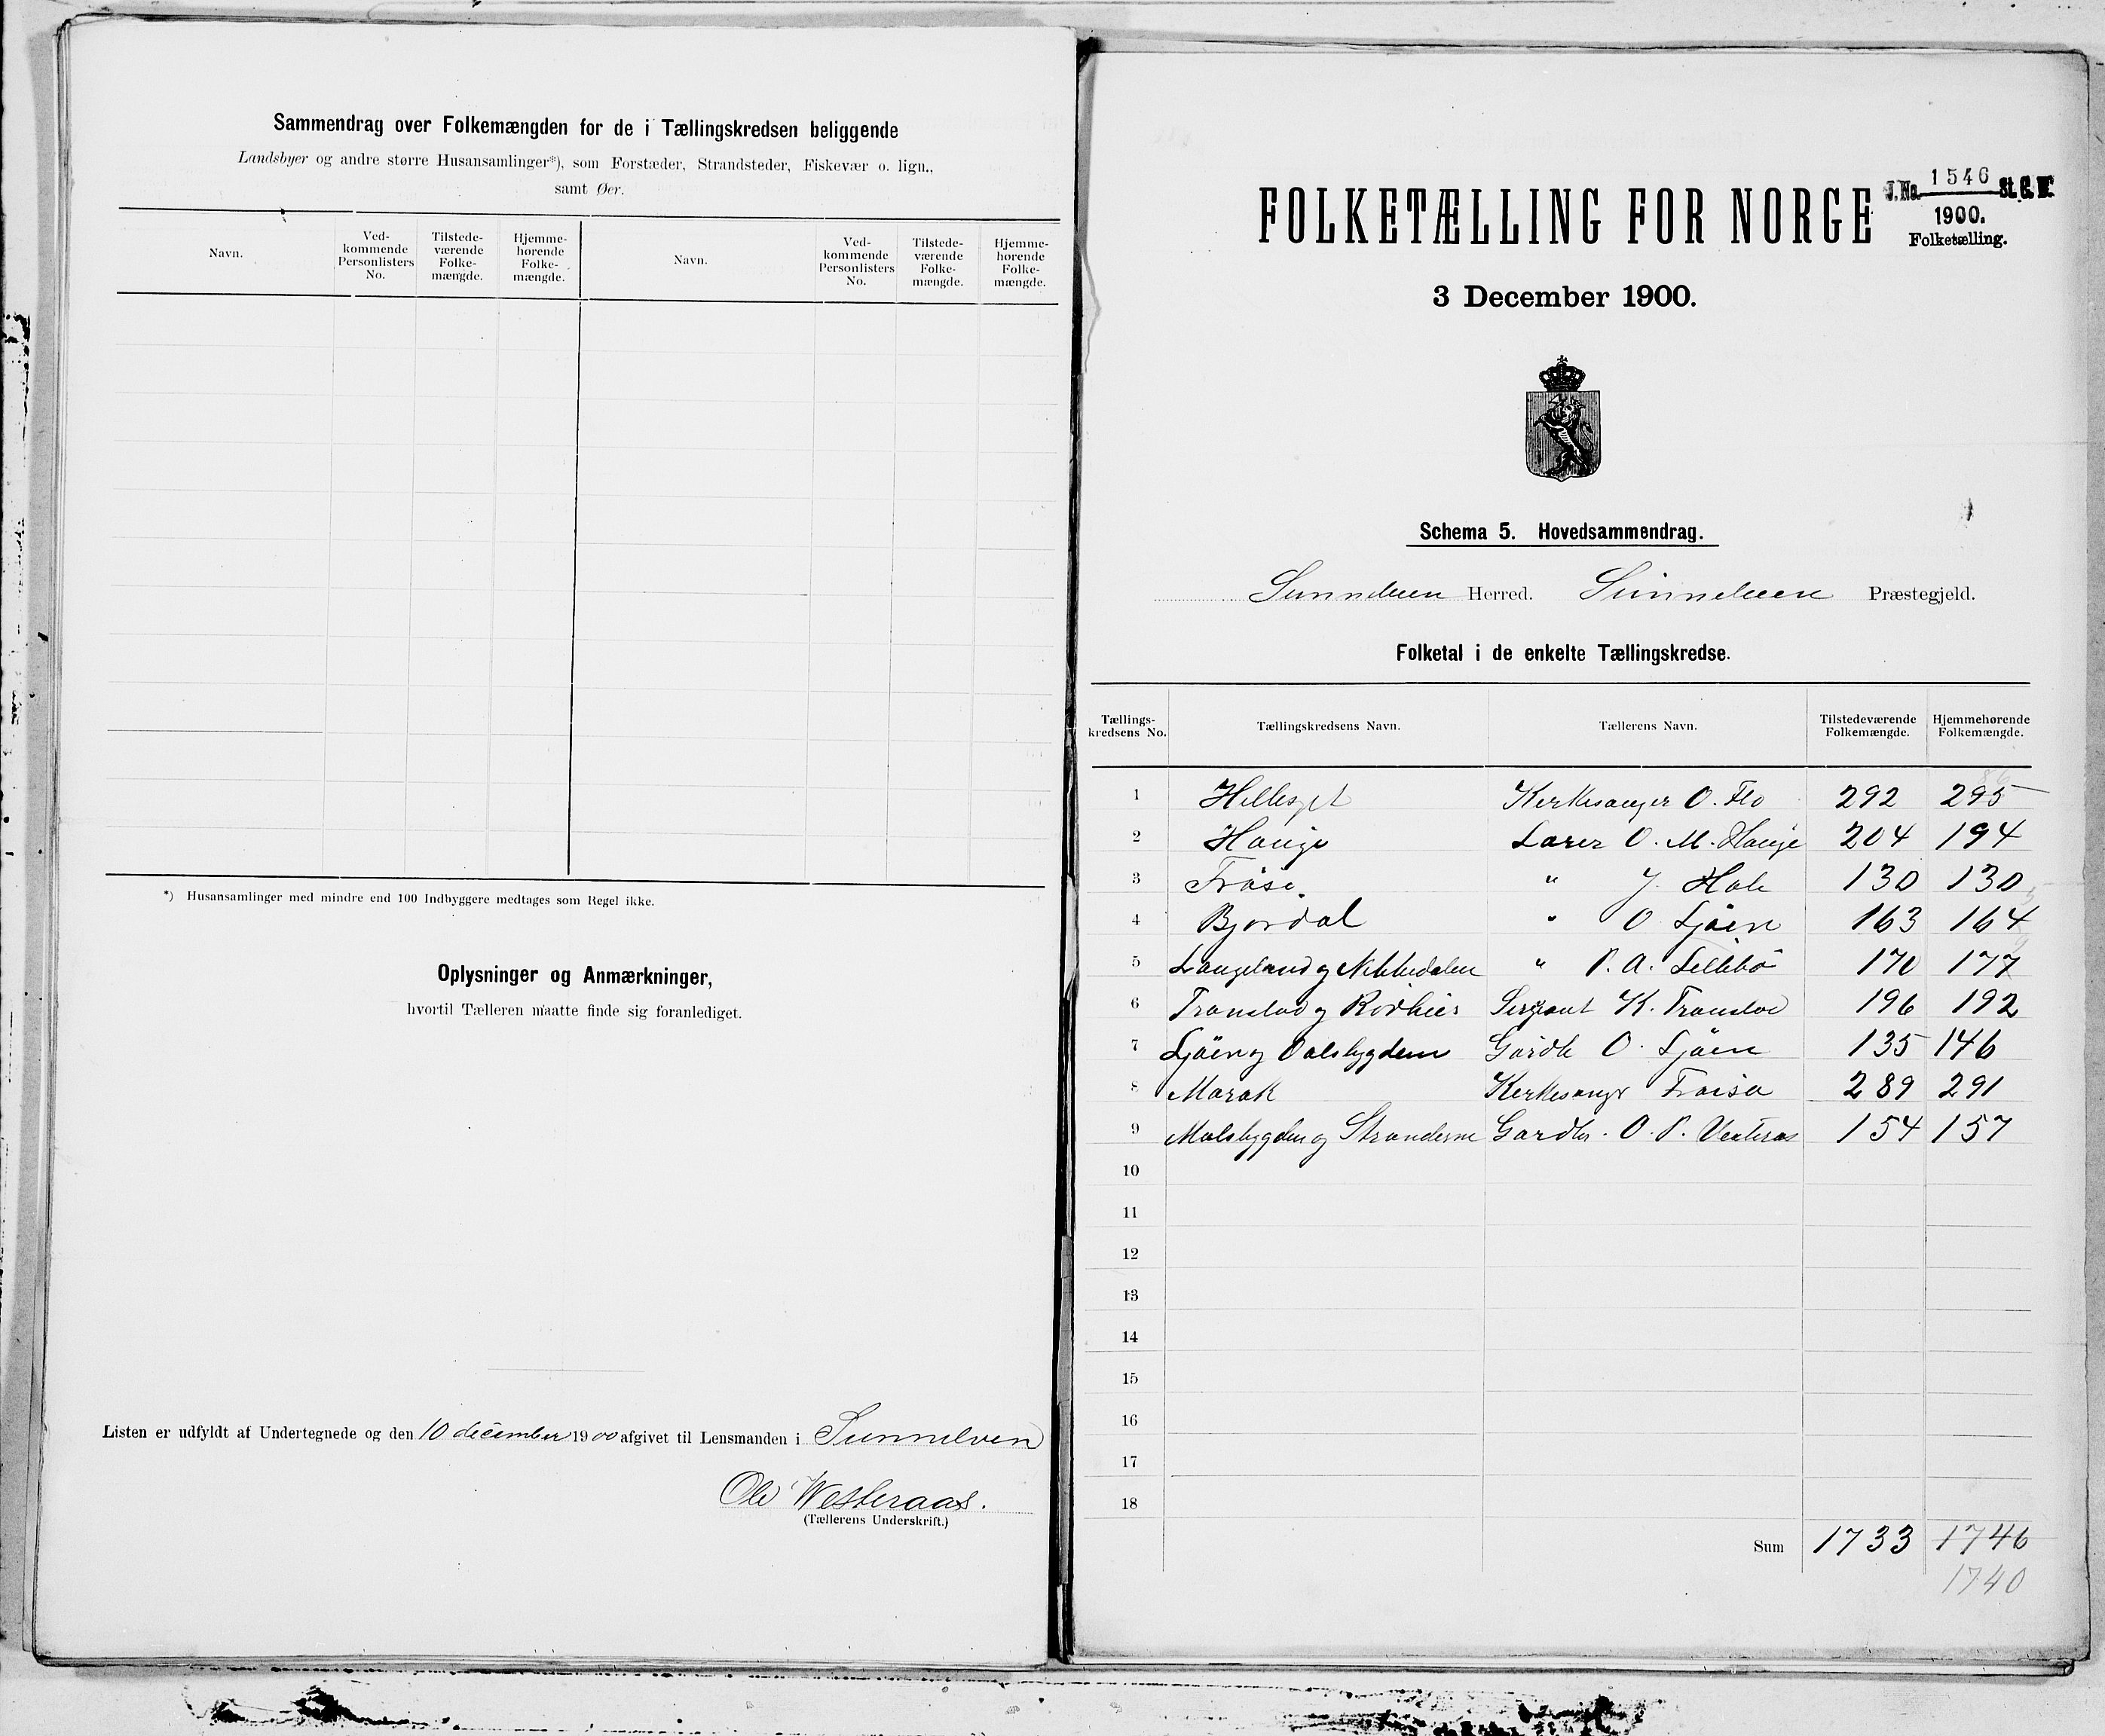 Sammendrag over Folkemængden for de i Tællingskredsen beliggende
Landsbyer og andre større Husansamlinger*), som Forstæder, Strandsteder, Fiskevær o. lign.,
samt Øer.
Navn. Ved-kommende Personlisters No. Tilstede-værende Folke-mængde. Hjemme-hørende Folke-mængde. Navn. Ved-kommende Personlisters No. Tilstede-værende Folke-mængde. Hjemme-hørende Folke-mængde.
*) Husansamlinger med mindre end 100 Indbyggere medtages som Regel ikke.
Oplysninger og Anmærkninger,
hvortil Tælleren maatte finde sig foranlediget.
Listen er udfyldt af Undertegnede og den 10 december 1900 afgivet til Lensmanden i Sunnelven
Ole Westeraas.
(Tællerens Underskrift.)
FOLKETÆLLING FOR NORGE
J. No. 1546 St. C. B.
1900.
Folketælling.
3 December 1900.
Schema 5. Hovedsammendrag.
Sunnelven Herred. Sunnelven Præstegjeld.
Folketal i de enkelte Tællingskredse.
Tællings-kredsens No. Tællingskredsens Navn. Tællerens Navn. Tilstedeværende Folkemængde. Hjemmehørende Folkemængde.
1 Hellesylt Kirkesanger O. Flo 292 295
2 Hauge Lærer O. M. Hauge 204 194
3 Frøise " J. Hole 130 130
4 Bjørdal " O Ljøen 163 164
5 Langeland og Nibbedalen " P. A. Lillebø 170 177
6 Tronstad og Rødhier Sergeant K. Tronstad 196 192
7 Ljøen og Oalsbygden Gaardb O. Ljøen 135 146
8 Marak Kirkesanger Frøisa 289 291
9 Molsbygden og Stranderne Gaardbr. O. P. Vesteras 154 157
10
11
12
13
14
15
16
17
18
Sum 1733 1746
1740